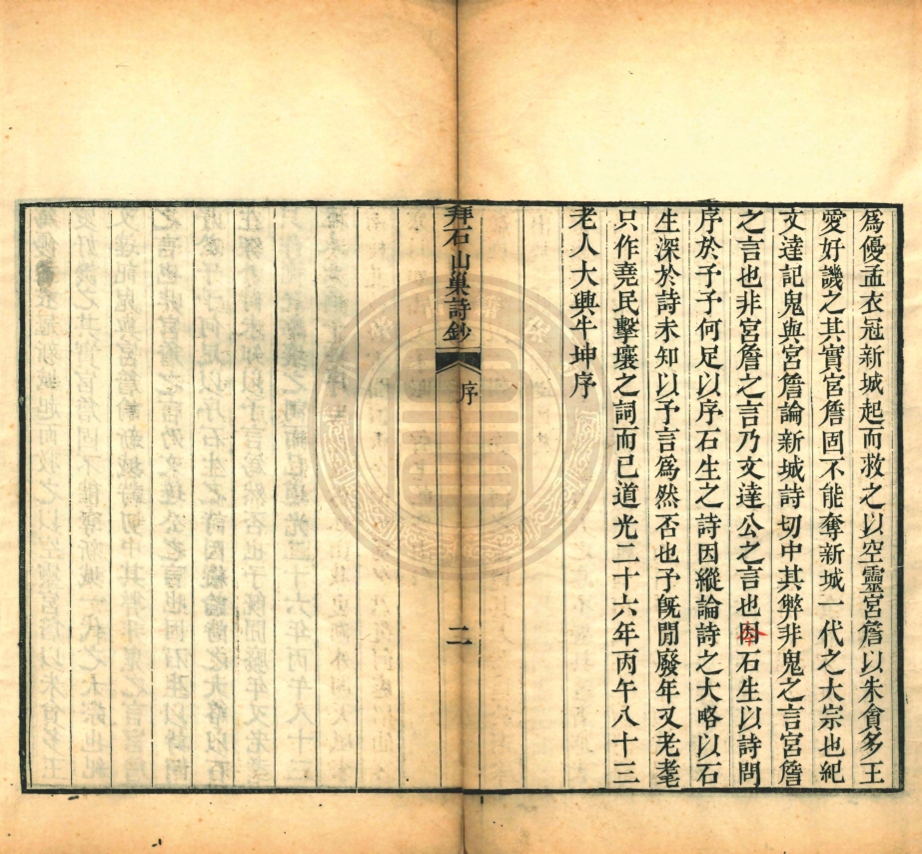 爲優孟衣冠新城起而救之以空靈宮詹以朱貪多王
愛好譏之其實宮詹固不能奪新城一代之大宗也紀
文達記鬼與宮詹論新城詩切中其弊非鬼之言宮詹
之言也非宮詹之言乃文達公之言也因石生以詩問
序於予予何足以序石生之詩因縱論詩之大略以石
生深於詩未知以予言爲然否也予旣閒廢年又老耄
只作堯民擊壤之詞而已道光二十六年丙午八十三
老人大興牛坤序
拜石山巢詩鈔
序
二